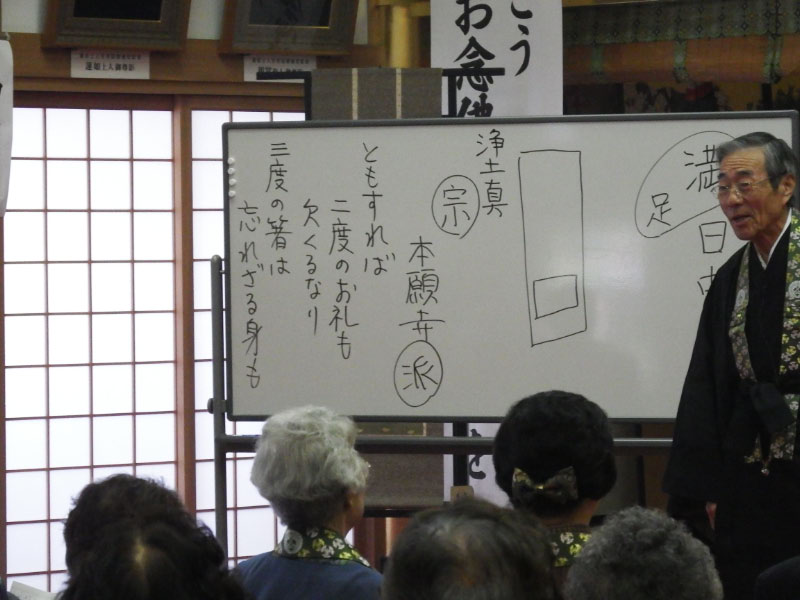 こう
お念
満日
足
浄土真
宗
本願寺
派
ともすれば
二度のお礼も
欠くるなり
三度の箸は
忘れざる身も